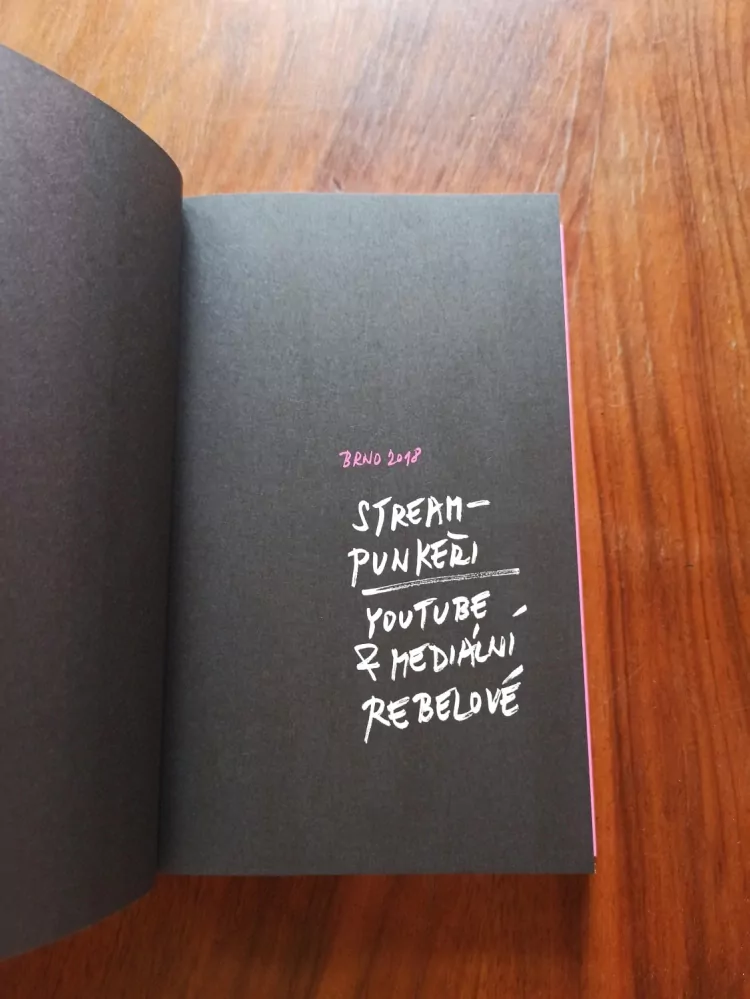 BRNO 2018
STREAM-
PUNKEŘI
YOUTUBE
& MEDIÁLNÍ
REBELOVÉ